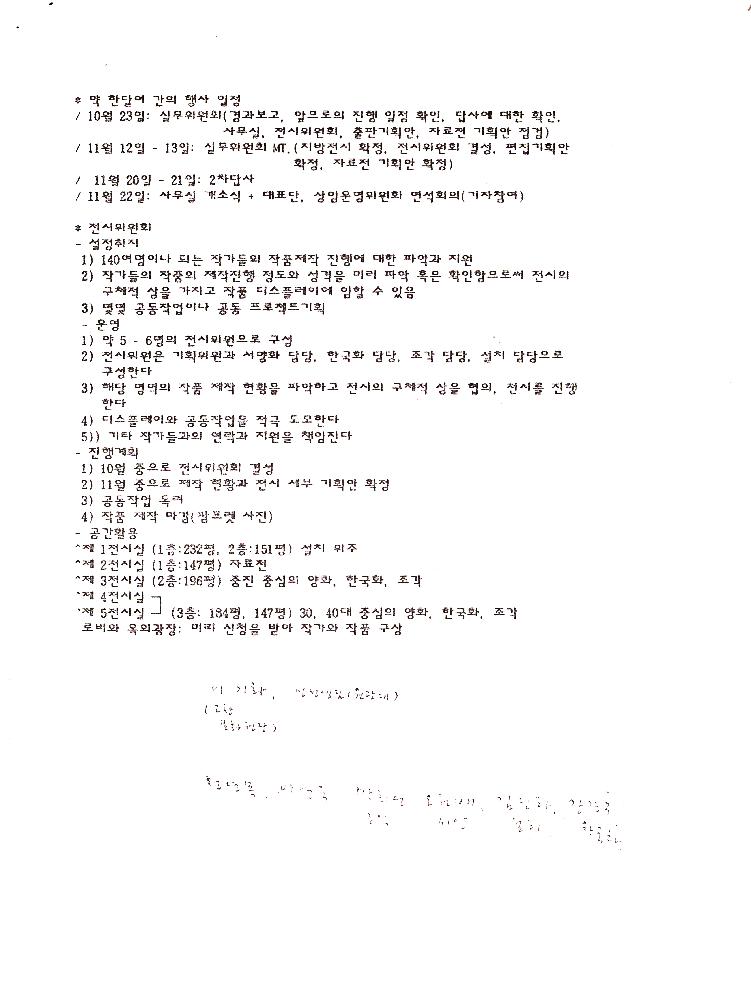 * 약 한달여 간의 행사 일정
/ 10월 23일: 실무위원회(경과보고, 앞으로의 진행 일정 확인, 답사에 대한 확인,
사무실, 전시위원회, 출판기획안, 자료전 기획안 점검)
/ 11월 12일 - 13일: 실무위원회 MT.(지방전시 확정, 전시위원회 결성, 편집기획안
확정, 자료전 기획안 확정)
/ 11월 20일 - 21일: 2차답사
/ 11월 22일: 사무실 개소식 + 대표단, 상임운영위원회 연석회의(기자참여)
* 전시위원회
- 설정취지
1) 140여명이나 되는 작가들의 작품제작 진행에 대한 파악과 지원
2) 작가들의 작품의 제작진행 정도와 성격을 미리 파악 혹은 확인함으로써 전시의
구체적 상을 가지고 작품 디스플레이에 임할 수 있음
3) 몇몇 공동작업이나 공동 프로젝트기획
- 운영
1) 약 5 - 6명의 전시위원으로 구성
2) 전시위원은 기획위원과 서양화 담당, 한국화 담당, 조각 담당, 설치 담당으로
구성한다
3) 해당 영역의 작품 제작 현황을 파악하고 전시의 구체적 상을 협의, 전시를 진행
한다
4) 디스플레이와 공동작업을 적극 도모한다
5)) 기타 작가들과의 연락과 지원을 책임진다
- 진행계획
1) 10월 중으로 전시위원회 결성
2) 11월 중으로 제작 현황과 전시 세부 기획안 확정
3) 공동작업 독려
4) 작품 제작 마감(팜프렛 사진)
- 공간활용
^제 1전시실 (1층:232평, 2층:151평) 설치 위주
^제 2전시실 (1층:147평) 자료전
^제 3전시실 (2층:196평) 중진 중심의 양화, 한국화, 조각
^제 4전시실
^제 5전시실 (3층: 184평, 147평) 30, 40대 중심의 양화, 한국화, 조각
로비와 옥외광장: 미리 신청을 받아 작가와 작품 구상